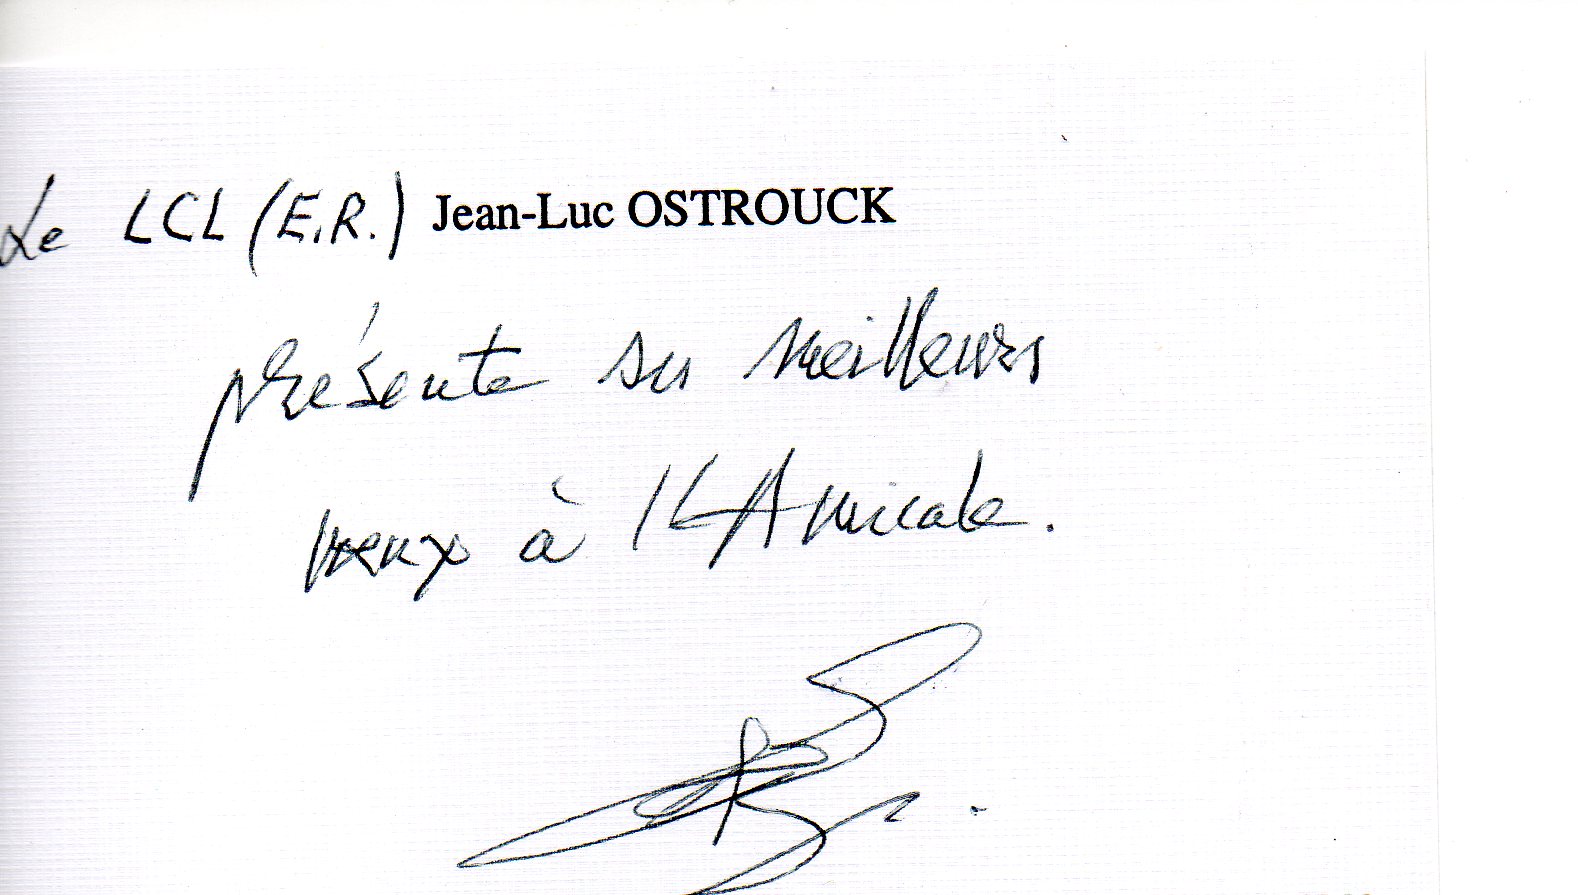 Le LCL (E.R.) Jean-Luc OSTROUCK
présente ses meilleurs
vœux à l'Amicale.